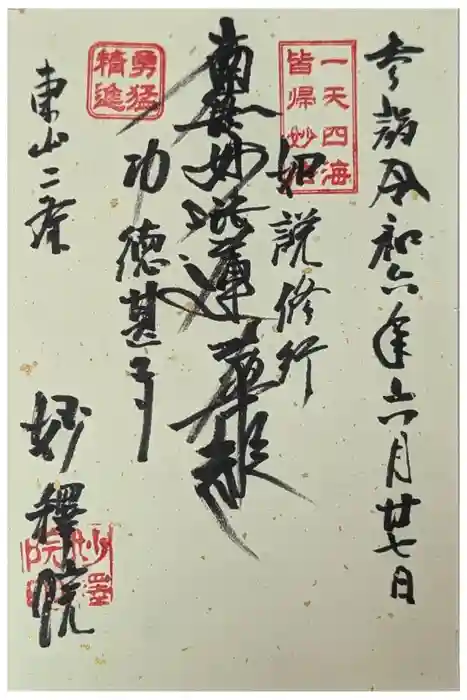 参詣令和六年六月廿七日
一天四海
皆帰妙
如説修行
南無妙法蓮華経
功徳甚多
勇猛
精進
東山二条
妙釋院